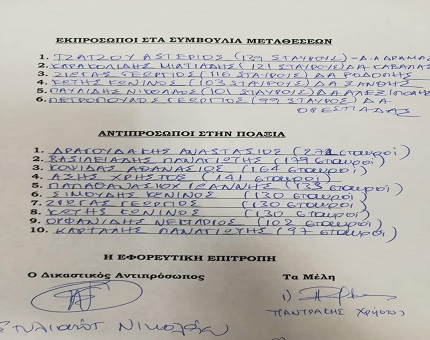 ΕΚΠΡΟΣΩΠΟΙ ΣΤΑ ΣΥΜΒΟΥΛΙΑ ΜΕΤΑΘΕΣΕΩΝ
1. ΤΖΑΤΖΟΥ ΑΣΤΕΡΙΟΣ (139 ΣΤΑΥΡΟΥΣ) Δ.Α ΔΡΑΜΑΣ
2. ΚΑΡΑΚΟΛΙΔΗΣ ΜΙΛΤΙΑΔΗΣ (121 ΣΤΑΥΡΟΥΣ) ΔΑ ΚΑΒΑΛΑΣ
3. ΖΙΩΓΑΣ ΓΕΩΡΓΙΟΣ (116 ΣΤΑΥΡΟΥΣ) ΔΑ ΡΟΔΟΠΗΣ
4. ΚΩΤΗΣ ΚΩΝ/ΝΟΣ ΣΤΑΥΡΟΥΣ) ΔΑ ΞΑΝΘΗΣ
5. ΠΑΥΛΙΔΗΣ ΝΙΚΟΛΑΟΣ (101 ΣΤΑΥΡΟΥΣ) ΔΑ ΑΛΕΞ/ΠΟΛΗΣ
6. ΠΕΤΡΟΠΟΥΛΟΣ ΓΕΩΡΓΙΟΣ (99 ΣΤΑΥΡΟΥΣ) ΔΑ
ΟΡΕΣΤΙΑΔΑΣ
ΑΝΤΙΠΡΟΣΩΠΟΙ ΣΤΗΝ ΠΟΑΞΙΑ
1. ΔΡΑΓΟΥΔΑΚΗΣ ΑΝΑΣΤΑΣΙΟΣ (271 σταυροί)
2. ΒΑΣΙΛΕΙΑΔΗΣ ΠΑΝΑΓΙΩΤΗΣ (179 σταυροί)
3. ΚΟΥΙΔΑΣ ΑΘΑΝΑΣΙΟΣ (164 σταυροί)
4. ΑΞΗΣ ΧΡΗΣΤΟΣ (141 σταυροί)
5. ΠΑΠΑΘΑΝΑΣΙΟΥ ΙΩΑΝΝΗΣ (133 σταυροί)
6. ΣΙΜΟΥΔΗΣ ΚΩΝ/ΝΟΣ (130 σταυροί)
7. ΖΙΩΓΑΣ ΓΕΩΡΓΙΟΣ (130 σταυροί)
8. ΚΩΤΗΣ ΚΩΝ/ΝΟΣ (130 σταυροί)
9. ΟΡΦΑΝΙΔΗΣ ΝΕΚΤΑΡΙΟΣ (102 σταυροί)
10. ΚΑΡΤΑΛΗΣ ΠΑΝΑΓΙΩΤΗΣ (97 σταυροί)
Η ΕΦΟΡΕΥΤΙΚΗ ΕΠΙΤΡΟΠΗ
Ο Δικαστικός Αντιπρόσωπος Τα Μέλη
1)
ΠΑΝΤΡΑΖΗΣ Χρήστος